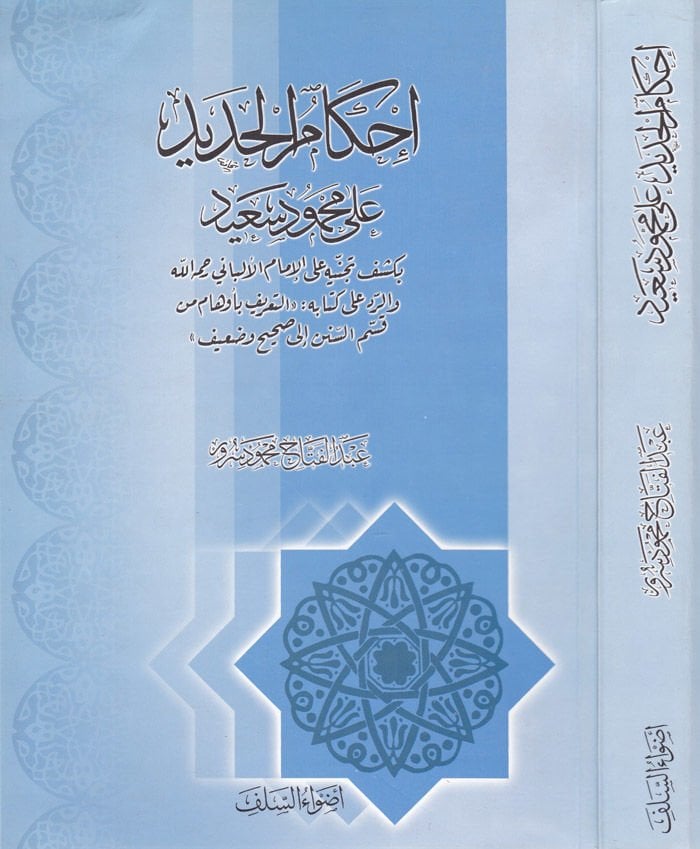 إحكام الحديد
على محمود سعيد
بكشف تجنيه على الإمام الألباني رحمه الله
والرد على كتابه: «التعريف بأوهام من
قسم السنن إلى صحيح وضعيف»
عبد الفتاح محمود سرور
أضواء السلف
إحكام الحديد على محمود سعيد
عبد الفتاح محمود سرور
أضواء السلف